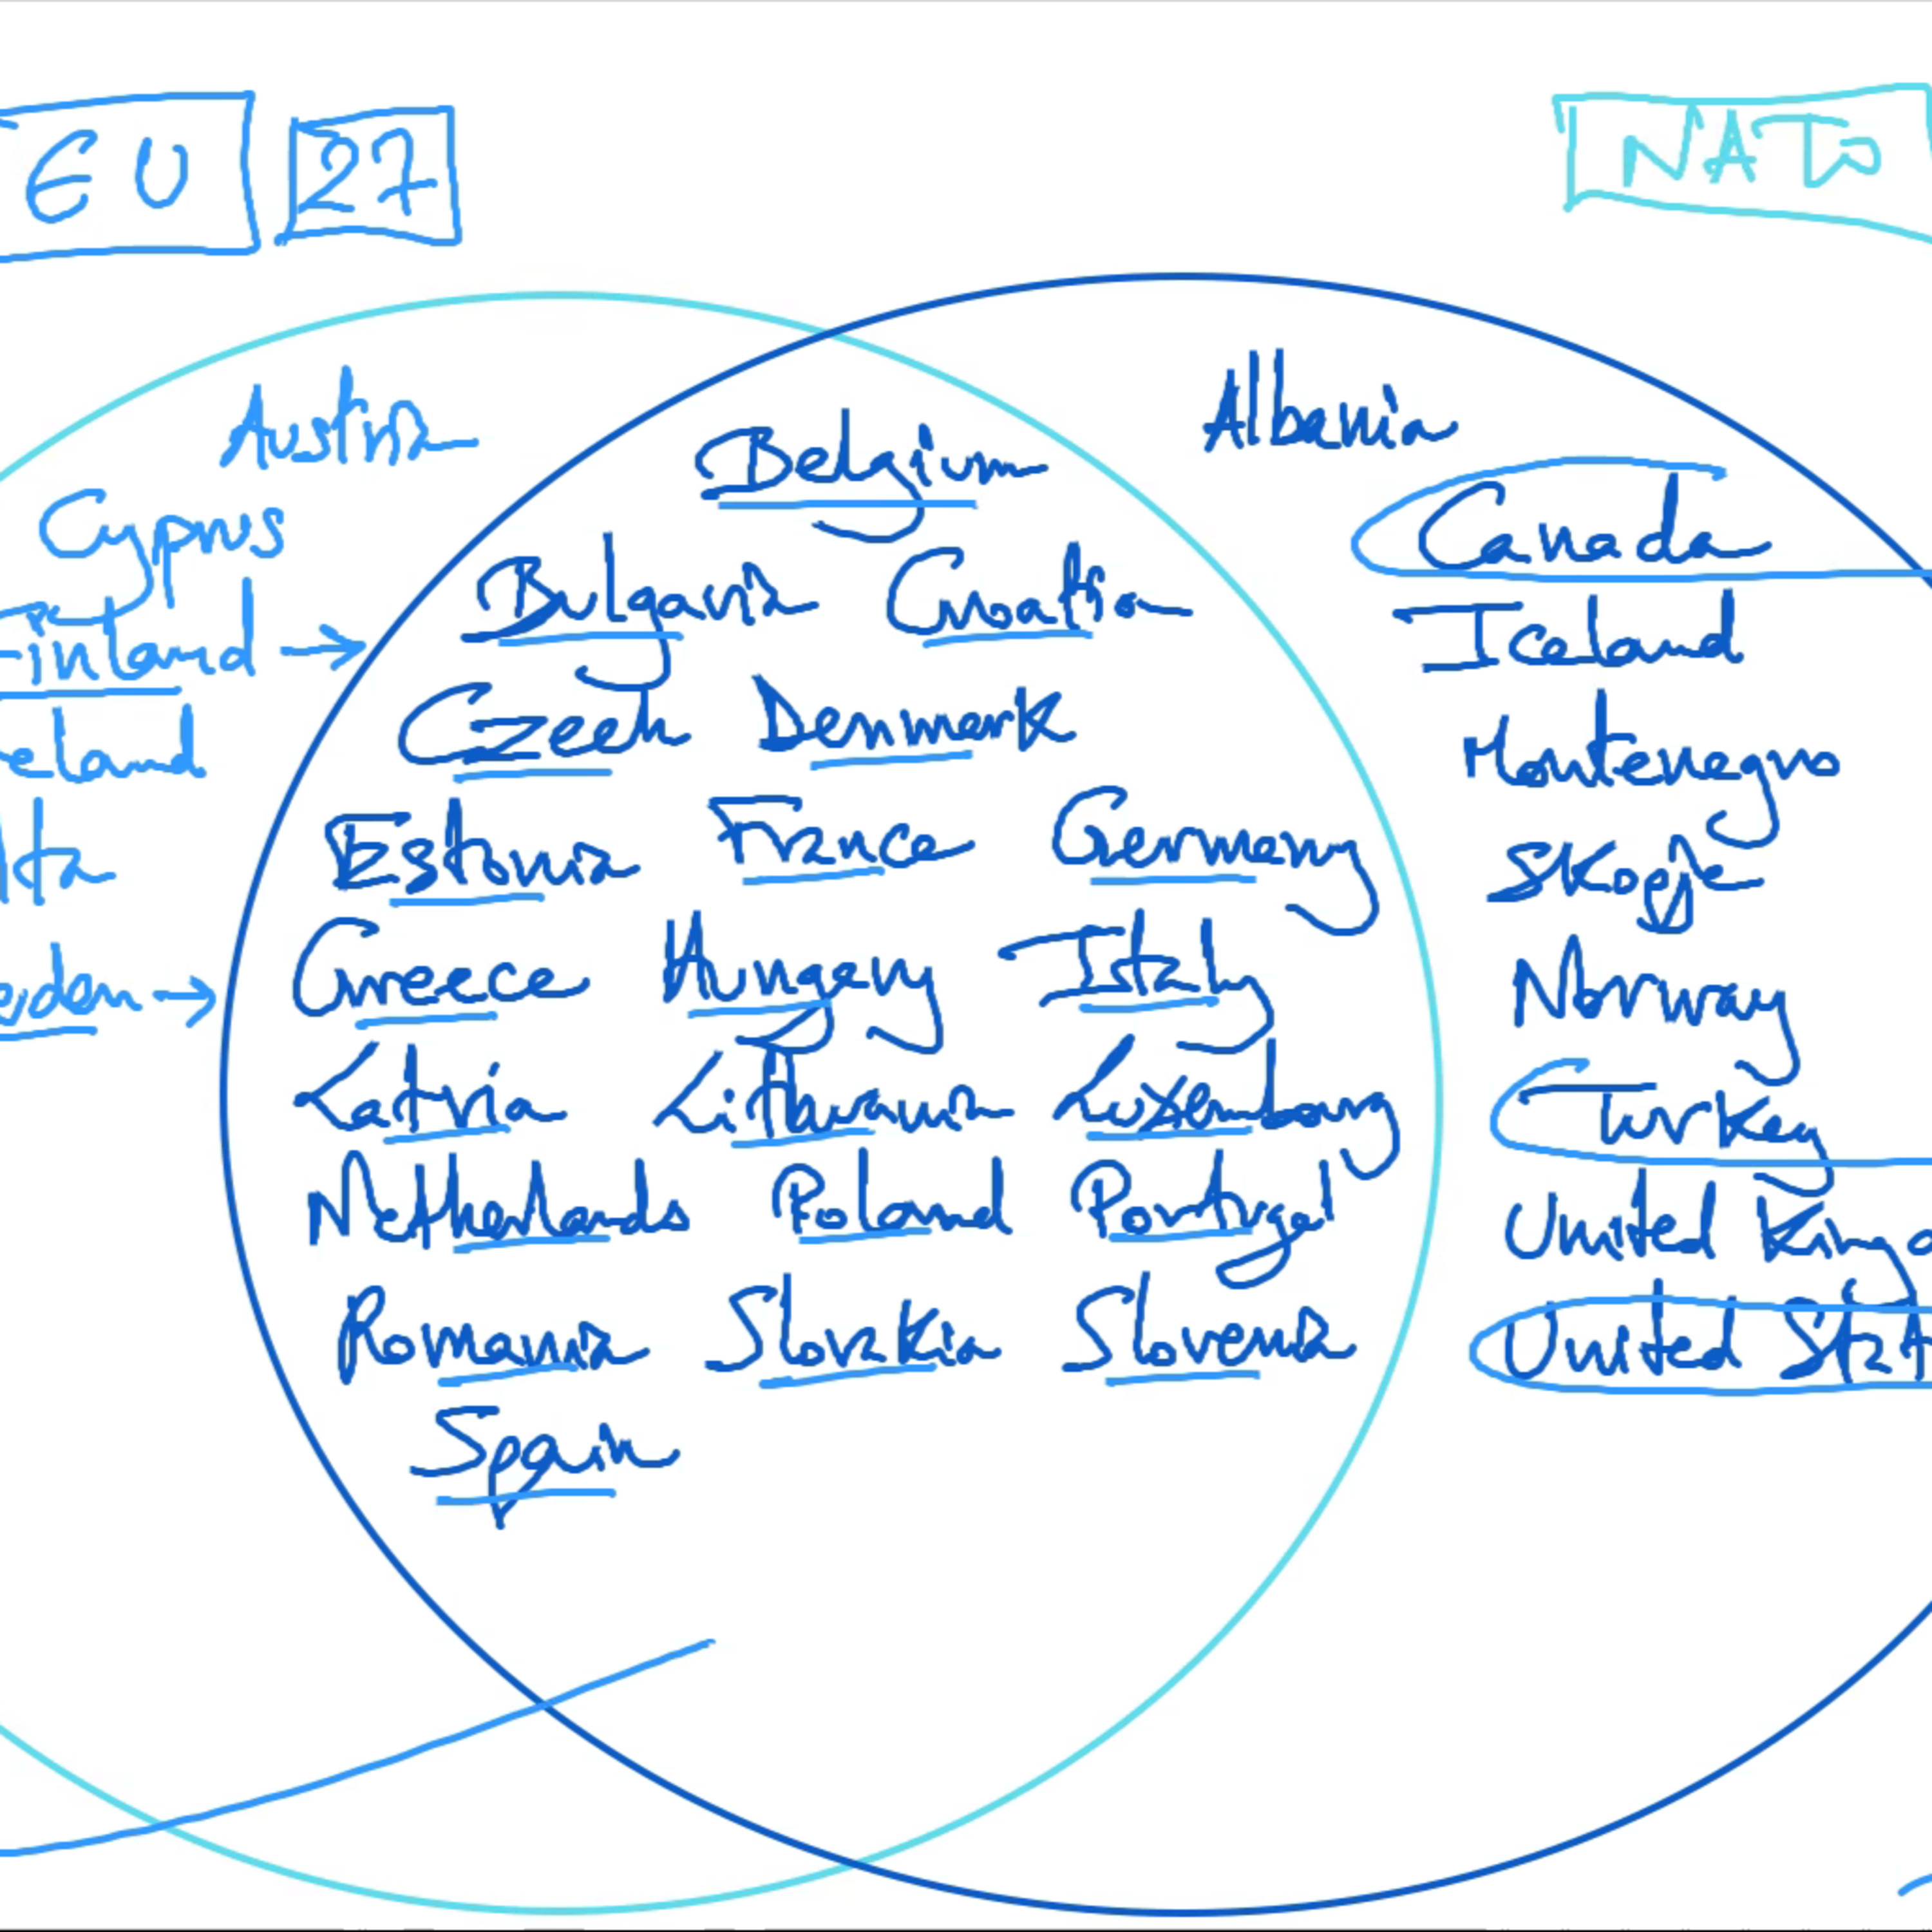 EU 27 NATO
Austria
Belgium
Albania
Cyprus
Canada
Finland →
Bulgaria Croatia
Iceland
eland
Czech Denmark
Montenegro
lta
Estonia France Germany
Skopje
eden →
Greece Hungary Italy
Norway
Latvia Lithuania Luxembourg
Turkey
Netherlands Poland Portugal
United King
Romania Slovakia Slovenia
United Stat
Spain